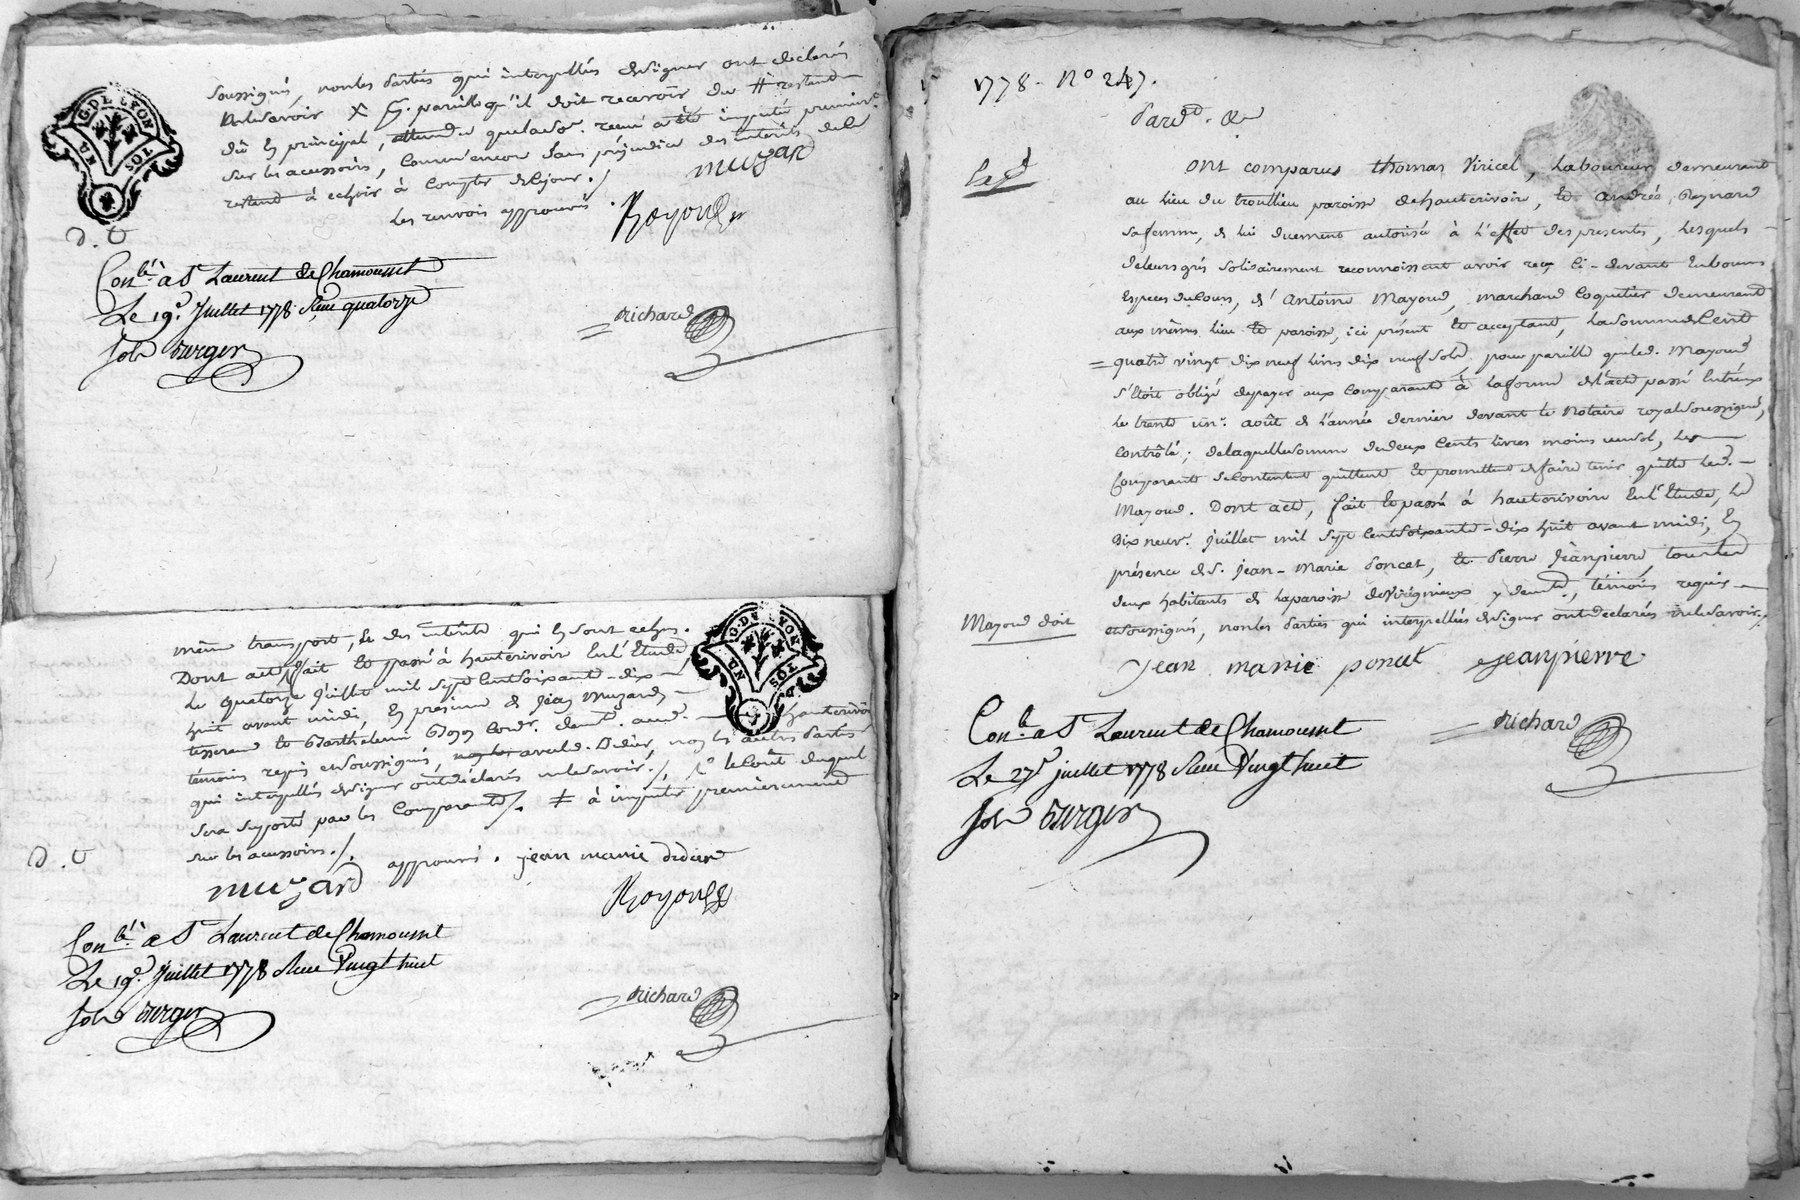 G. DE LYON
UN SOL
soussignés, non les parties qui interpellés de signer ont déclarés
ne le savoir X & pareille qu'il doit recevoir du # restant
dû en principal, attendu que la so. recue a été imputée premierᵗ
sur les accessoirs, comm'encore sans préjudice des intérêts de la
restant à echoir à compter de ce jour ./
muzard
Les renvois approuvés . Royoud
D. T
Conˡᵉ a Sᵗ Laurent de Chamousset
Le 19ᵉ Juillet 1778 Reçu quatorze
sols
richard
même transport, & des intérêts qui en sont echus.
Dont acte fait et passé à hauterivoire en l'Etude,
Le quatorze Juillet mil sept cent soixante-dix-
huit avant midi, en présence de Jean Muzard
tisserand et Barthelemi
hauterivoire
témoins requis et soussignés, avec led. Didier, non les autres parties
qui interpellés de signer ont déclarés ne le savoir ./. le coût duquel
sera suporté par les comparants /. ‡ à imputer premierement
sur les accessoirs ./.
D. T
approuvé . jean marie didier
muzard
Royoud
Conˡᵉ a Sᵗ Laurent de Chamousset
Le 19ᵉ Juillet 1778 Reçu Vingt huit
sols
richard
G. DE LYON
UN SOL
1778. N° 247.
Pardᵗ. &
Ont comparus thomas Viricel, Laboureur demeurant
au lieu du troullieu paroisse de hauterivoire, et andrée Reynard
sa femme, de lui duement autorisée à l'effet des presentes, Lesquels
de leurs grés solidairement reconnoissent avoir reçu ci-devant en bonnes
Especes du cours, d'Antoine Mayoud, marchand Coquetier demeurant
aux mêmes lieu et paroisse, ici présent et acceptant, la somme de Cent
quatre vingt dix neuf livres dix neuf sols, pour pareille que led. Mayoud
s'étoit obligé de payer aux comparants à la forme de l'acte passé entr'eux
le trente un. août de l'année derniere devant le Notaire royal soussigné,
contrôlé; de laquelle somme de deux cents livres moins un sol, Les
Comparants se contentent quittent et promettent de faire tenir quitte led.
Mayoud. Dont acte, fait et passé à hauterivoire en l'Etude, Le
dix neuv. juillet mil sept cent soixante-dix huit avant midi, En
présence de s. jean-Marie Poncet, et Pierre Jeanpierre, tous les
deux habitants de la paroisse de Virigneux y demᵗˢ, témoins requis
et soussignés, non les Parties qui interpellées de signer ont déclarés ne le savoir ./.
Mayoud doit
jean marie poncet jeanpierre
Conˡᵉ a Sᵗ Laurent de Chamousset
Le 27ᵉ juillet 1778 Reçu Vingt huit
sols
richard